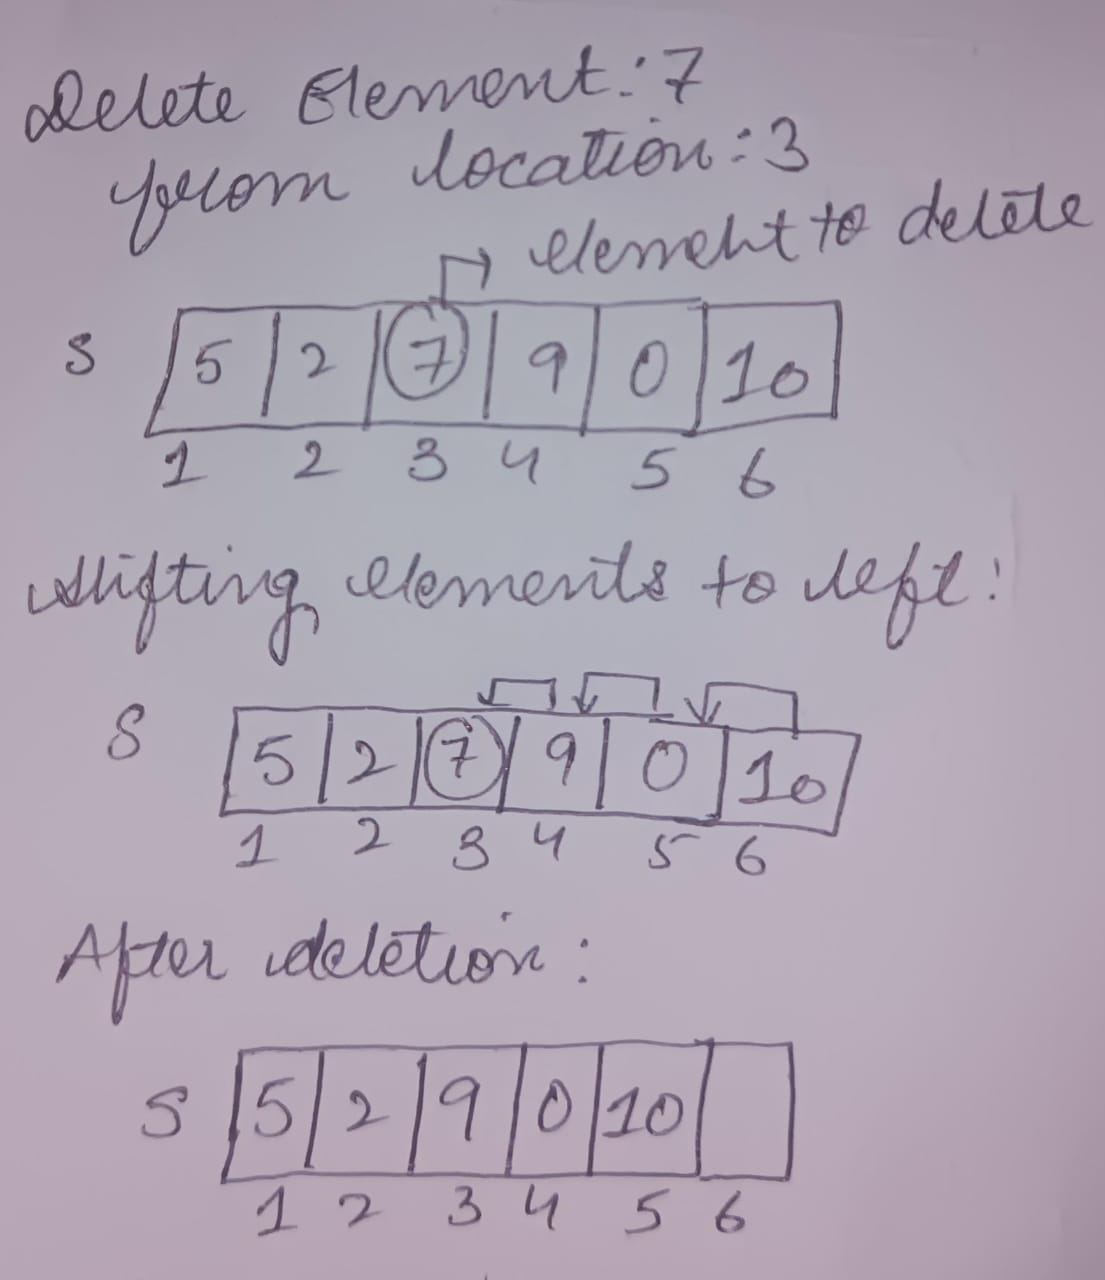 Delete Element: 7
from location: 3
element to delete
S 5 2 7 9 0 10
1 2 3 4 5 6
Shifting elements to left:
S 5 2 7 9 0 10
1 2 3 4 5 6
After deletion:
S 5 2 9 0 10
1 2 3 4 5 6